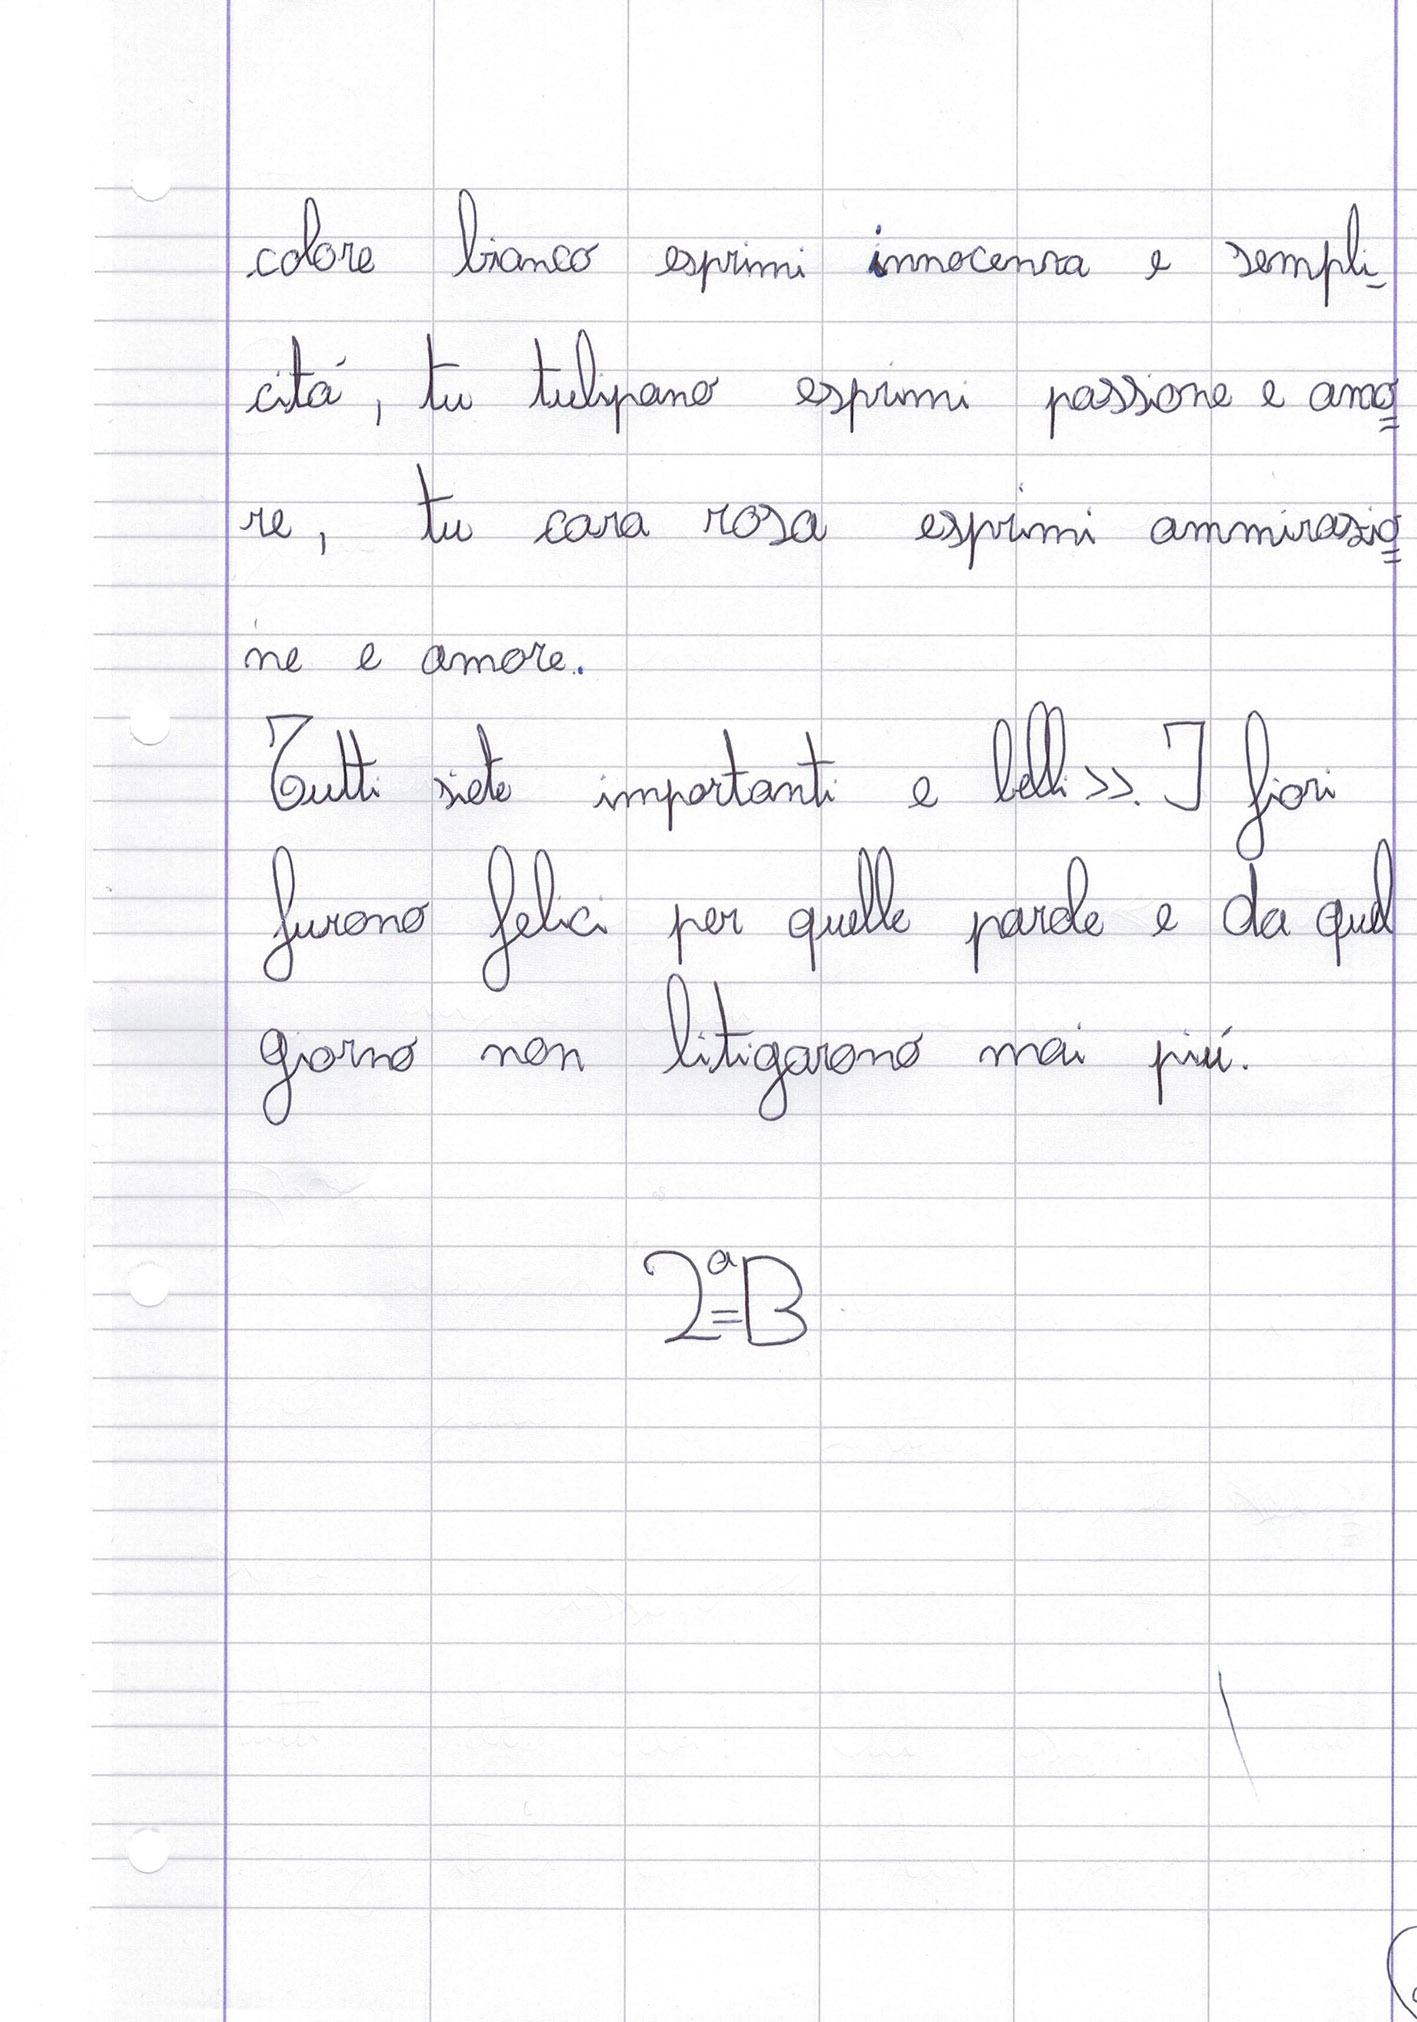 colore bianco esprimi innocenza e sempli-
citá, tu tulipano esprimi passione e amo=
re, tu cara rosa esprimi ammirazio=
ne e amore.
Tutti siete importanti e belli>>. I fiori
furono felici per quelle parole e da quel
giorno non litigarono mai piú.
2ª=B